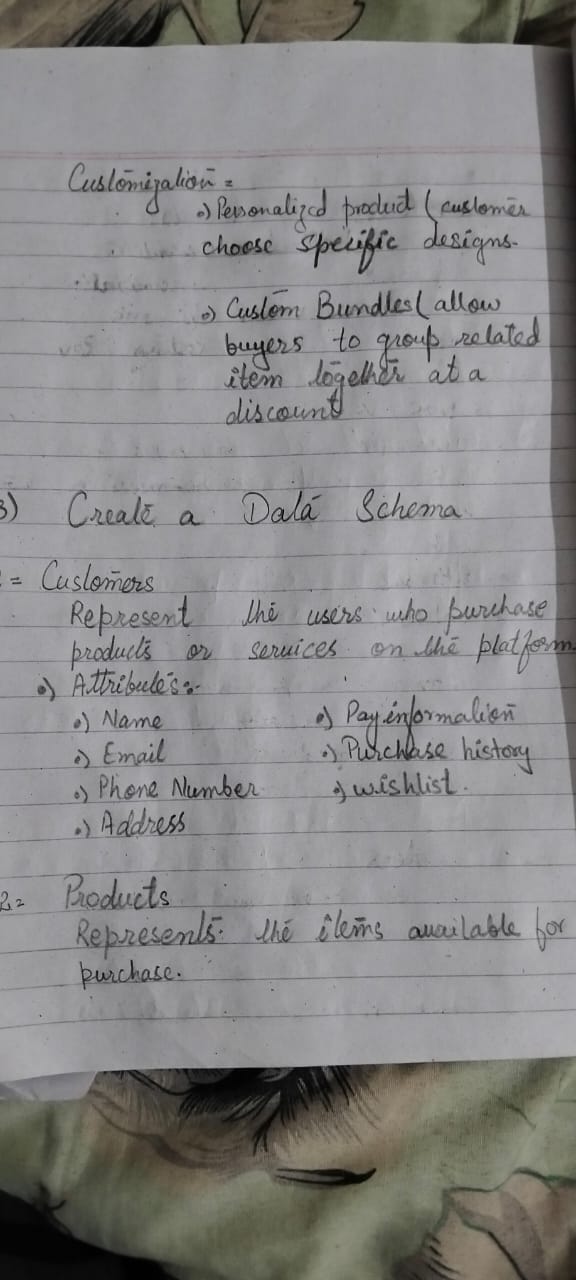 Customization =
•) Personalized product (customer
choose specific designs.
•) Custom Bundles (allow
buyers to group related
item together at a
discount
3) Create a Data Schema
= Customers
Represent the users who purchase
products or services on the platform
•) Attributes:-
•) Name •) Pay.information
•) Email •) Purchase history
•) Phone Number •) wishlist.
•) Address
2= Products
Represents the items available for
purchase.